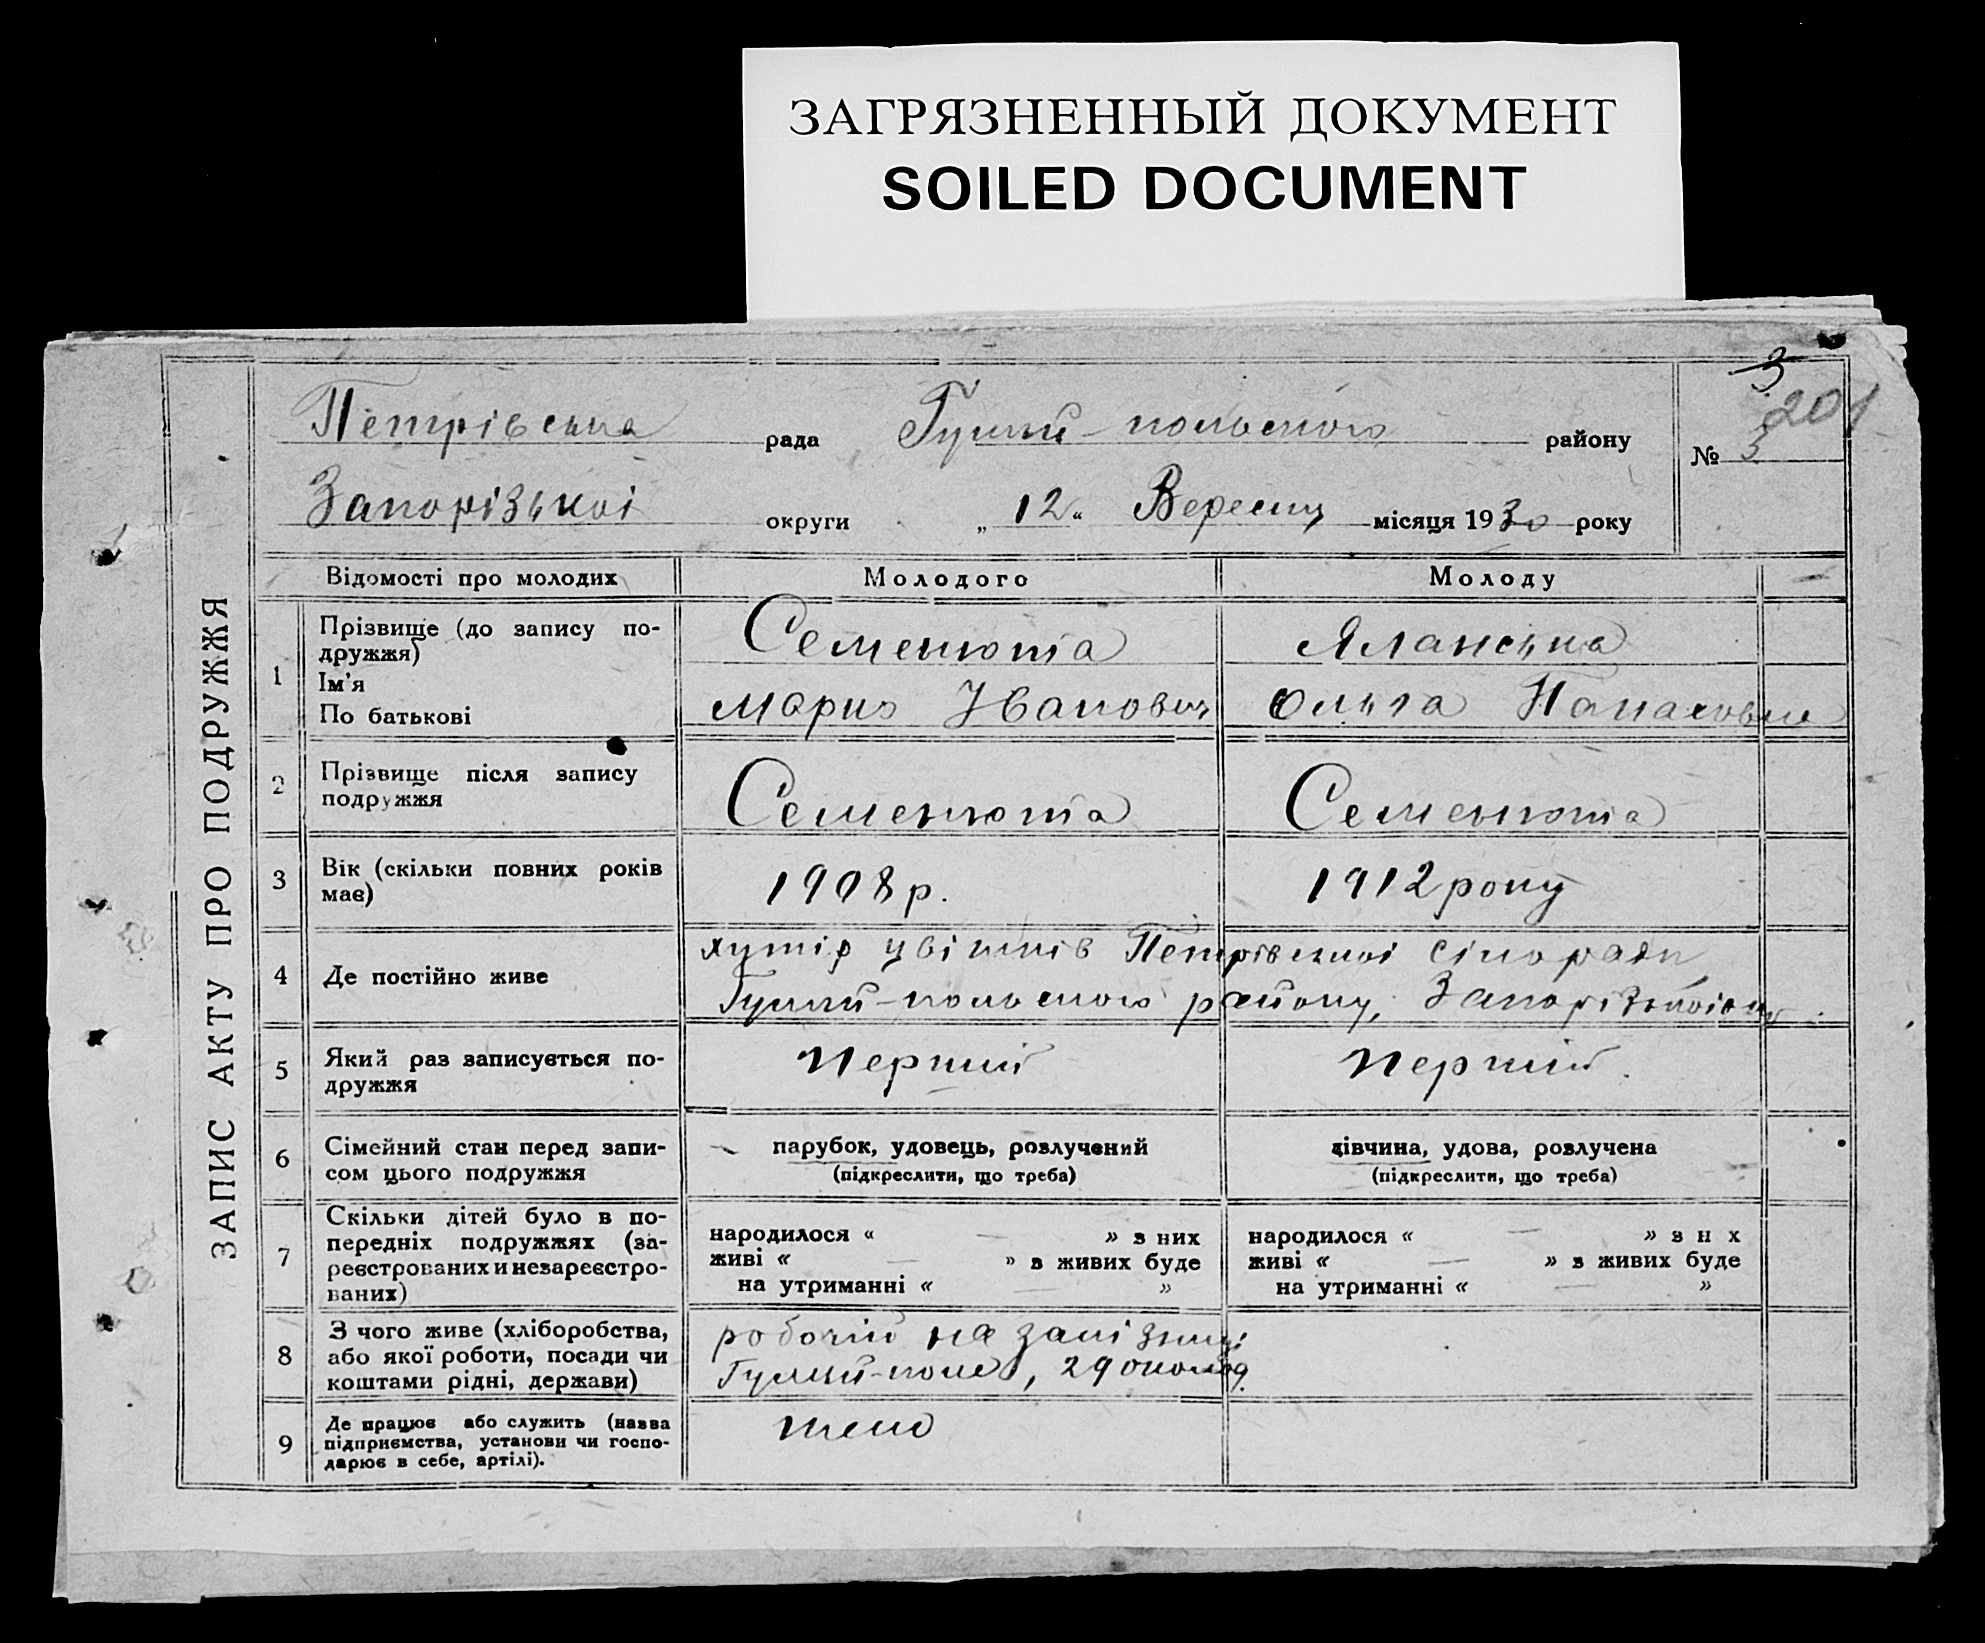 ЗАГРЯЗНЕННЫЙ ДОКУМЕНТ
SOILED DOCUMENT
3
201
Петрівська рада Гуляй-польского району № 3
Запорізької округи „12“ Вересня місяця 1930 року
ЗАПИС АКТУ ПРО ПОДРУЖЖЯ
Відомості про молодих Молодого Молоду
1 Прізвище (до запису по-
дружжя)
Ім'я
По батькові
Семенюта Яланська
Марко Іванович Ольга Панасовна
2 Прізвище після запису
подружжя
Семенюта Семенюта
3 Вік (скільки повних років
має)
1908 р. 1912 року
4 Де постійно живе
хутір Цвітків Петрівської сілоради
Гуляй-польского району,
5 Який раз записується по-
дружжя
перший перший
6 Сімейний стан перед запи-
сом цього подружжя
парубок, удовець, розлучений
(підкреслити, що треба)
дівчина, удова, розлучена
(підкреслити, що треба)
7 Скільки дітей було в по-
передніх подружжях (за-
реєстрованих и незареєстро-
ваних)
народилося « — » з них
живі « — » з живих буде
на утриманні « — »
народилося « — » з н х
живі « — » з живих буде
на утриманні « — »
8 З чого живе (хліборобства,
або якої роботи, посади чи
коштами рідні, держави)
робочій на залізниці
Гуляй-поле, 29
9 Де працює або служить (назва
підприємства, установи чи госпо-
дарює в себе, артілі).